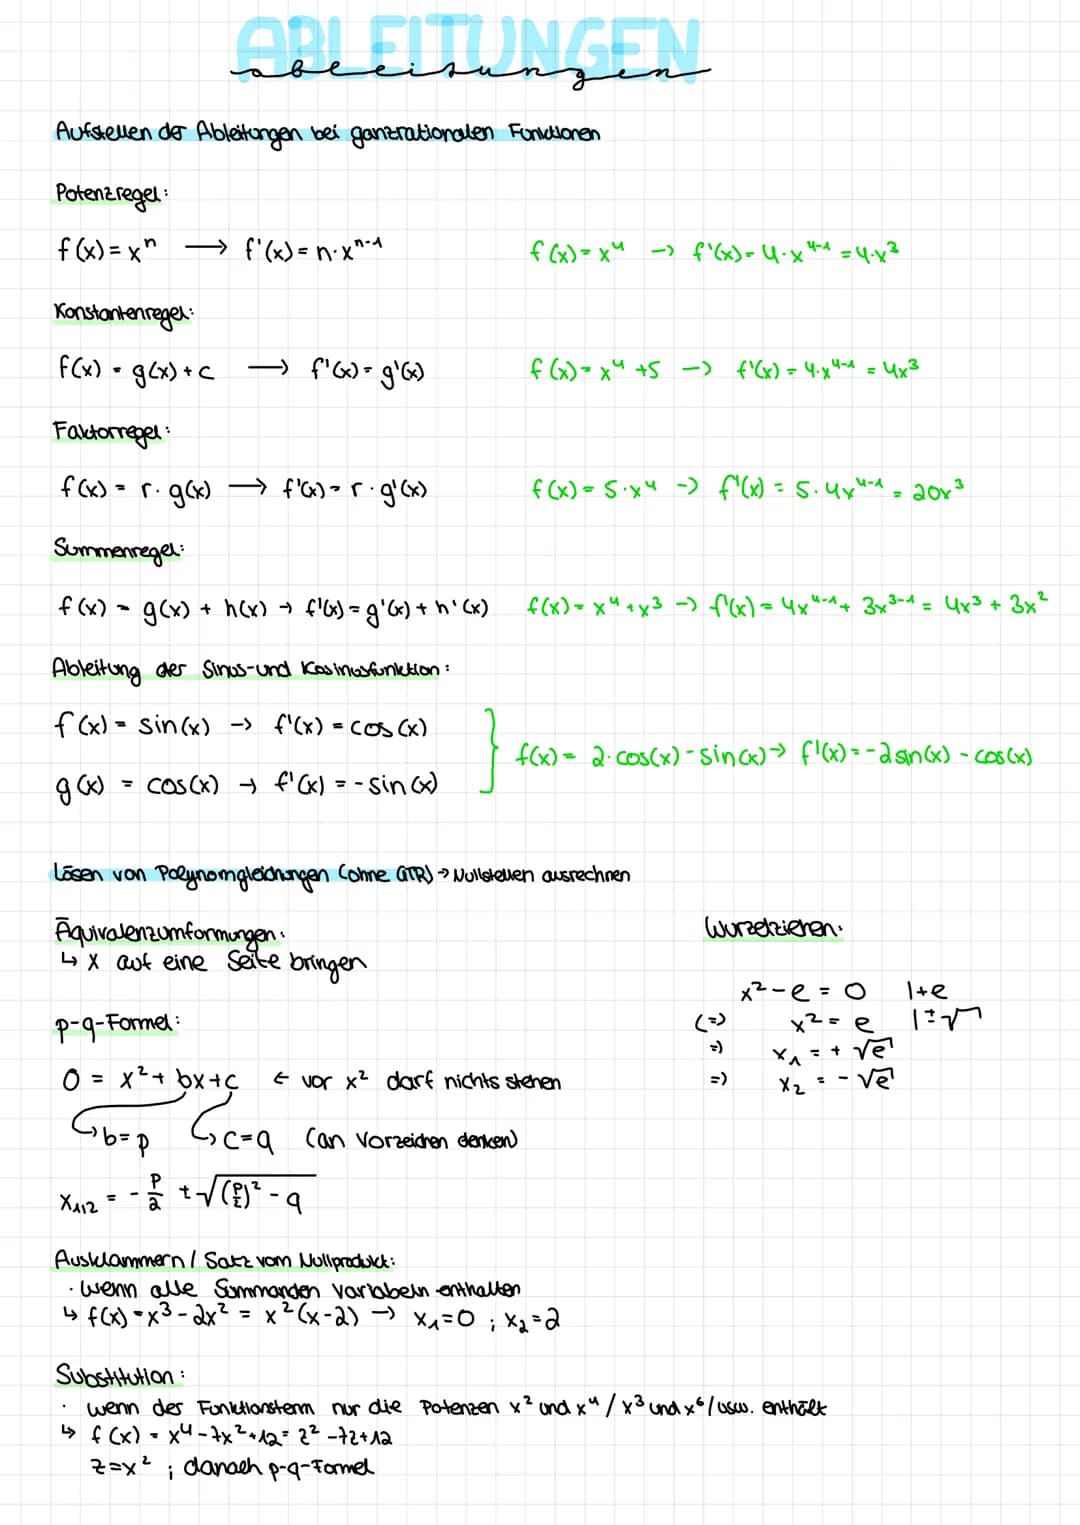 ABLEITUNGEN
ableitungen
Aufstellen der Ableitungen bei ganzrationalen Funktionen
Potenzregel:
f(x) = xⁿ ⟶ f'(x) = n·xⁿ⁻¹ f(x) = x⁴ -> f'(x) = 4·x⁴⁻¹ = 4·x³
Konstantenregel:
f(x) = g(x) + c ⟶ f'(x) = g'(x) f(x) = x⁴ +5 -> f'(x) = 4·x⁴⁻¹ = 4x³
Faktorregel:
f(x) = r · g(x) ⟶ f'(x) = r · g'(x) f(x) = 5·x⁴ -> f'(x) = 5·4x⁴⁻¹ = 20x³
Summenregel:
f(x) = g(x) + h(x) → f'(x) = g'(x) + h'(x) f(x) = x⁴ + x³ -> f'(x) = 4x⁴⁻¹ + 3x³⁻¹ = 4x³ + 3x²
Ableitung der Sinus- und Kosinusfunktion:
f(x) = sin(x) -> f'(x) = cos(x)
g(x) = cos(x) → f'(x) = - sin(x)
} f(x) = 2·cos(x) - sin(x) → f'(x) = -2sin(x) - cos(x)
Lösen von Polynomgleichungen (ohne GTR) → Nullstellen ausrechnen
Äquivalenzumformungen:
↳ x auf eine Seite bringen
Wurzelziehen:
x² - e = 0 |+e
(=) x² = e |±√
=) x₁ = + √e
=) x₂ = - √e
p-q-Formel:
0 = x² + bx + c ← vor x² darf nichts stehen
↳ b = p ↳ c = q (an Vorzeichen denken)
x₁,₂ = - p/2 ± √((p/2)² - q)
Ausklammern / Satz vom Nullprodukt:
· wenn alle Summanden Variabeln enthalten
↳ f(x) = x³ - 2x² = x²(x-2) → x₁=0 ; x₂=2
Substitution:
· wenn der Funktionsterm nur die Potenzen x² und x⁴ / x³ und x⁶ / usw. enthält
↳ f(x) = x⁴ - 7x² + 12 = z² - 7z + 12
z = x² ; danach p-q-Formel